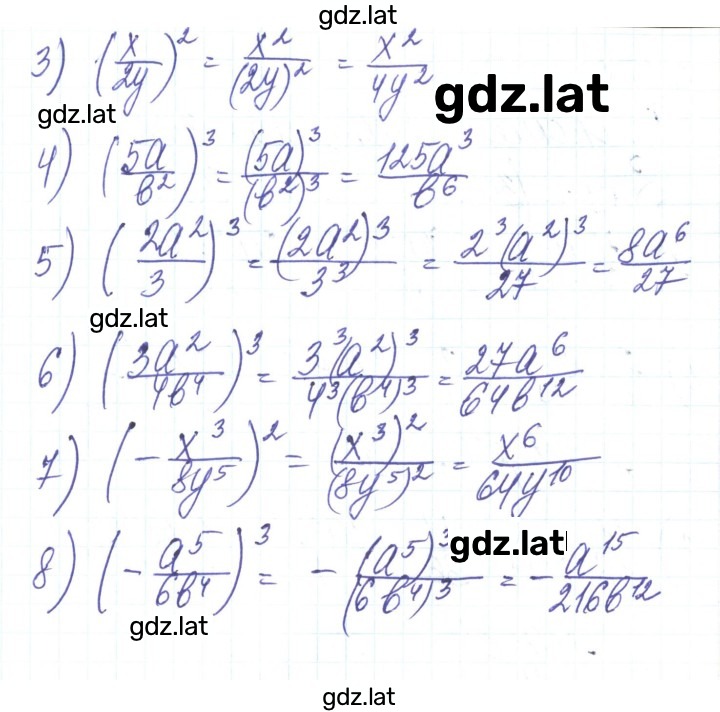 gdz.lat
3) (x/2y)² = x²/(2y)² = x²/4y²
gdz.lat
gdz.lat
4) (5a/в²)³ = (5a)³/(в²)³ = 125a³/в⁶
5) (2a²/3)³ = (2a²)³/3³ = 2³(a²)³/27 = 8a⁶/27
gdz.lat
6) (3a²/4в⁴)³ = 3³(a²)³/4³(в⁴)³ = 27a⁶/64в¹²
7) (-x³/8y⁵)² = (x³)²/(8y⁵)² = x⁶/64y¹⁰
gdz.lat
8) (-a⁵/6в⁴)³ = -(a⁵)³/(6в⁴)³ = -a¹⁵/216в¹²
gdz.lat
gdz.lat